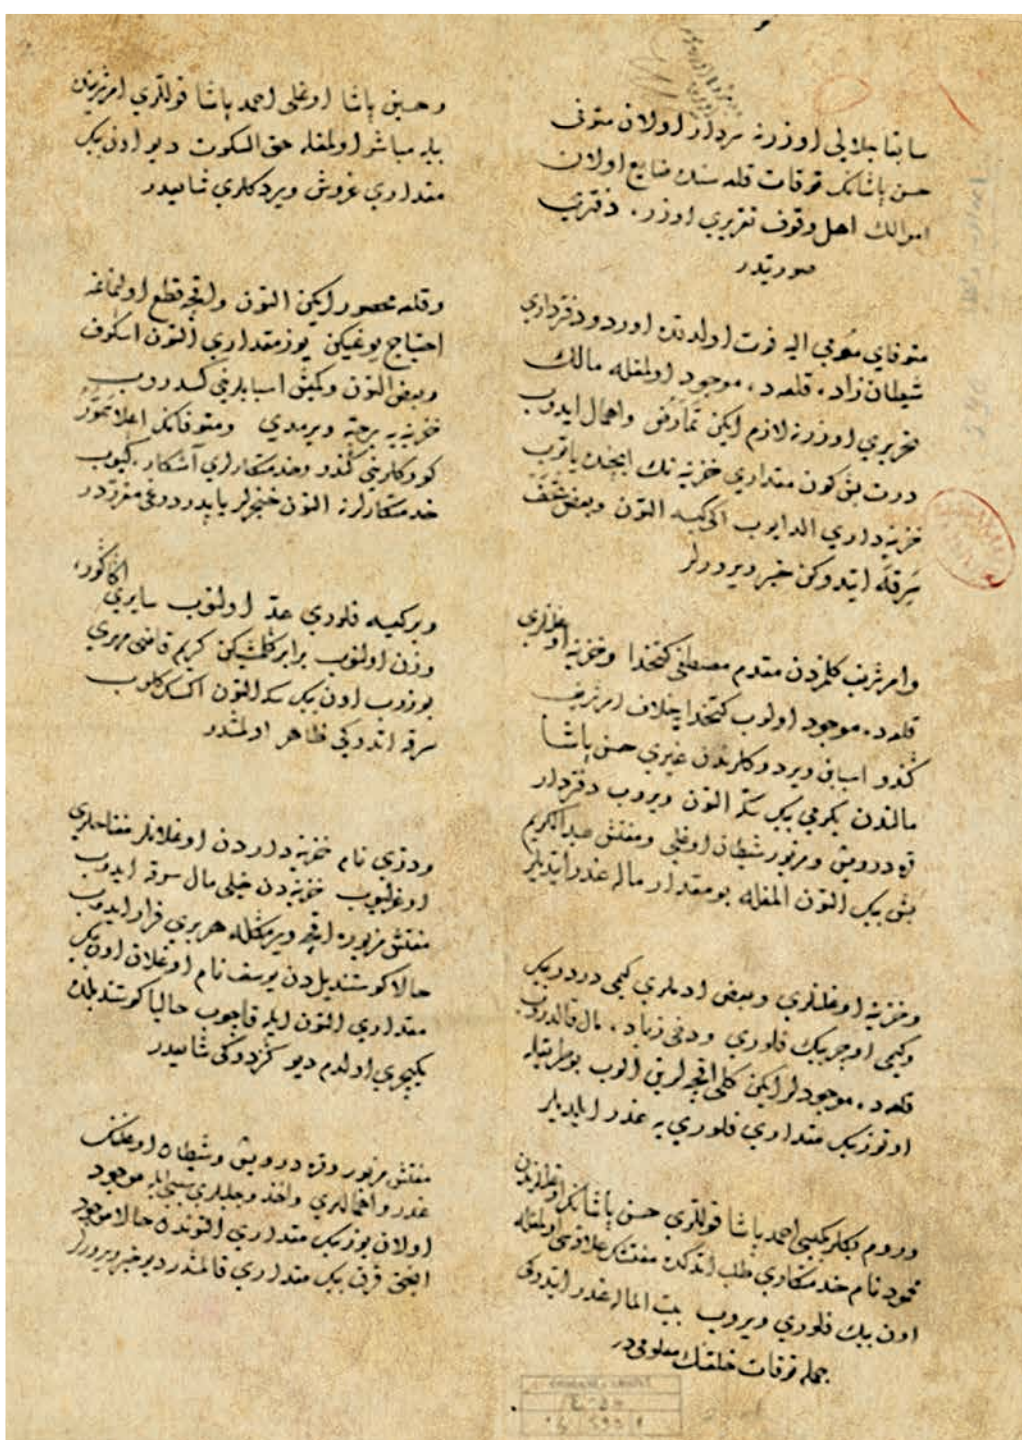 سابقا جلالی اوزرنه سردار اولان متوفی
حسن پاشانك توقات قلعه سنده ضایع اولان
اموالك اهل وقوف تقریری اوزره دفتریدر
صورتیدر
متوفای مومی الیه فوت اولدقده اوردو دفترداری
شیطان زاده قلعه ده موجود اولمغله مالك
تحریری اوزرنه لازم ایكن تمارض واهمال ایدوب
درت بش كون مقداری خزینه نك ایچنده یاتوب
خزینه داری الدایوب ایكی كیسه التون وبعض تحف
سرقه ایتدوكن خبر ویرورلر
وامر شریف كلمزدن مقدم مصطفی كتخدا وخزینه اوغلانلری
قلعه ده موجود اولوب كتخدا خلاف امر شریف
كندو اسبابن ویردوكلرندن غیری حسن پاشا
مالندن یكرمی بیك سكه التون ویروب دفتردار
قره درویش ومزبور شیطان اوغلی ومفتش عبدالكریم
بش بیك التون المغله بو مقدار ماله غدر ایتدیلر
وخزینه اوغلانلری وبعض ادملری كیمی درد بیك
وكیمی اوچر بیك فلوری ودخی زیاده مال قالدروب
قلعه ده موجودلر ایكن كلی اقچه لرین الوب بو طریقله
اوتوز بیك مقداری فلوری یه غدر ایلدیلر
وروم بكلربكیسی احمد پاشا قوللری حسن پاشانك اوغلانلرندن
محمود نام خدمتكاری طلب ایتدكده مفتشك علاقه سی اولمغله
اون بیك فلوری ویروب بیت الماله غدر ایتدوكی
جمله توقات خلقنك معلومی در
وحسین پاشا اوغلی احمد پاشا قوللری امر شریفله
بیله مباشر اولمغله حق السكوت دیو اون بیك
مقداری غروش ویردكلری شایعدر
وقلعه محصور ایكن التون واقچه قطع اولنماغه
احتیاج یوغیكن یوز مقداری التون اسكوف
وبعض التون وكمش اسبابلرینی كسدروب
خزینه یه بر حبه ویرمدی ومتوفانك اعلا سمور
كوركلرینی كندو وخدمتكارلری آشكاره كیوب
خدمتكارلرنه التون خنجرلر یاپدردوغی مقرردر
وبر كیسه فلوری عد اولنوب سایری اكا كوره
وزن اولنوب برابر كلمش ایكن كریم قاضی مهری
بوزوب اون بیك سكه التون اكسك كلوب
سرقه اتدوكی ظاهر اولمشدر
ودزی نام خزینه داردن اوغلانلر مفتاحلری
اوغرلیوب خزینه دن خیلی مال سرقه ایدوب
مفتش مزبوره اقچه ویرمكله هر بری فرار ایدوب
حالا كوستندیلدن یوسف نام اوغلان اون بیك
مقداری التون ایله قاچوب حالیا كوستندیلده
یكیچری اولدم دیو كزدوكی شایعدر
مفتش مزبور وقره درویش وشیطان اوغلنك
غدر واهماللری واخذ وجلبلری سببی ایله موجود
اولان یوز بیك مقداری التوندن حالا موجود
انجق قرق بیك مقداری قالمشدر دیو خبر ویرورلر